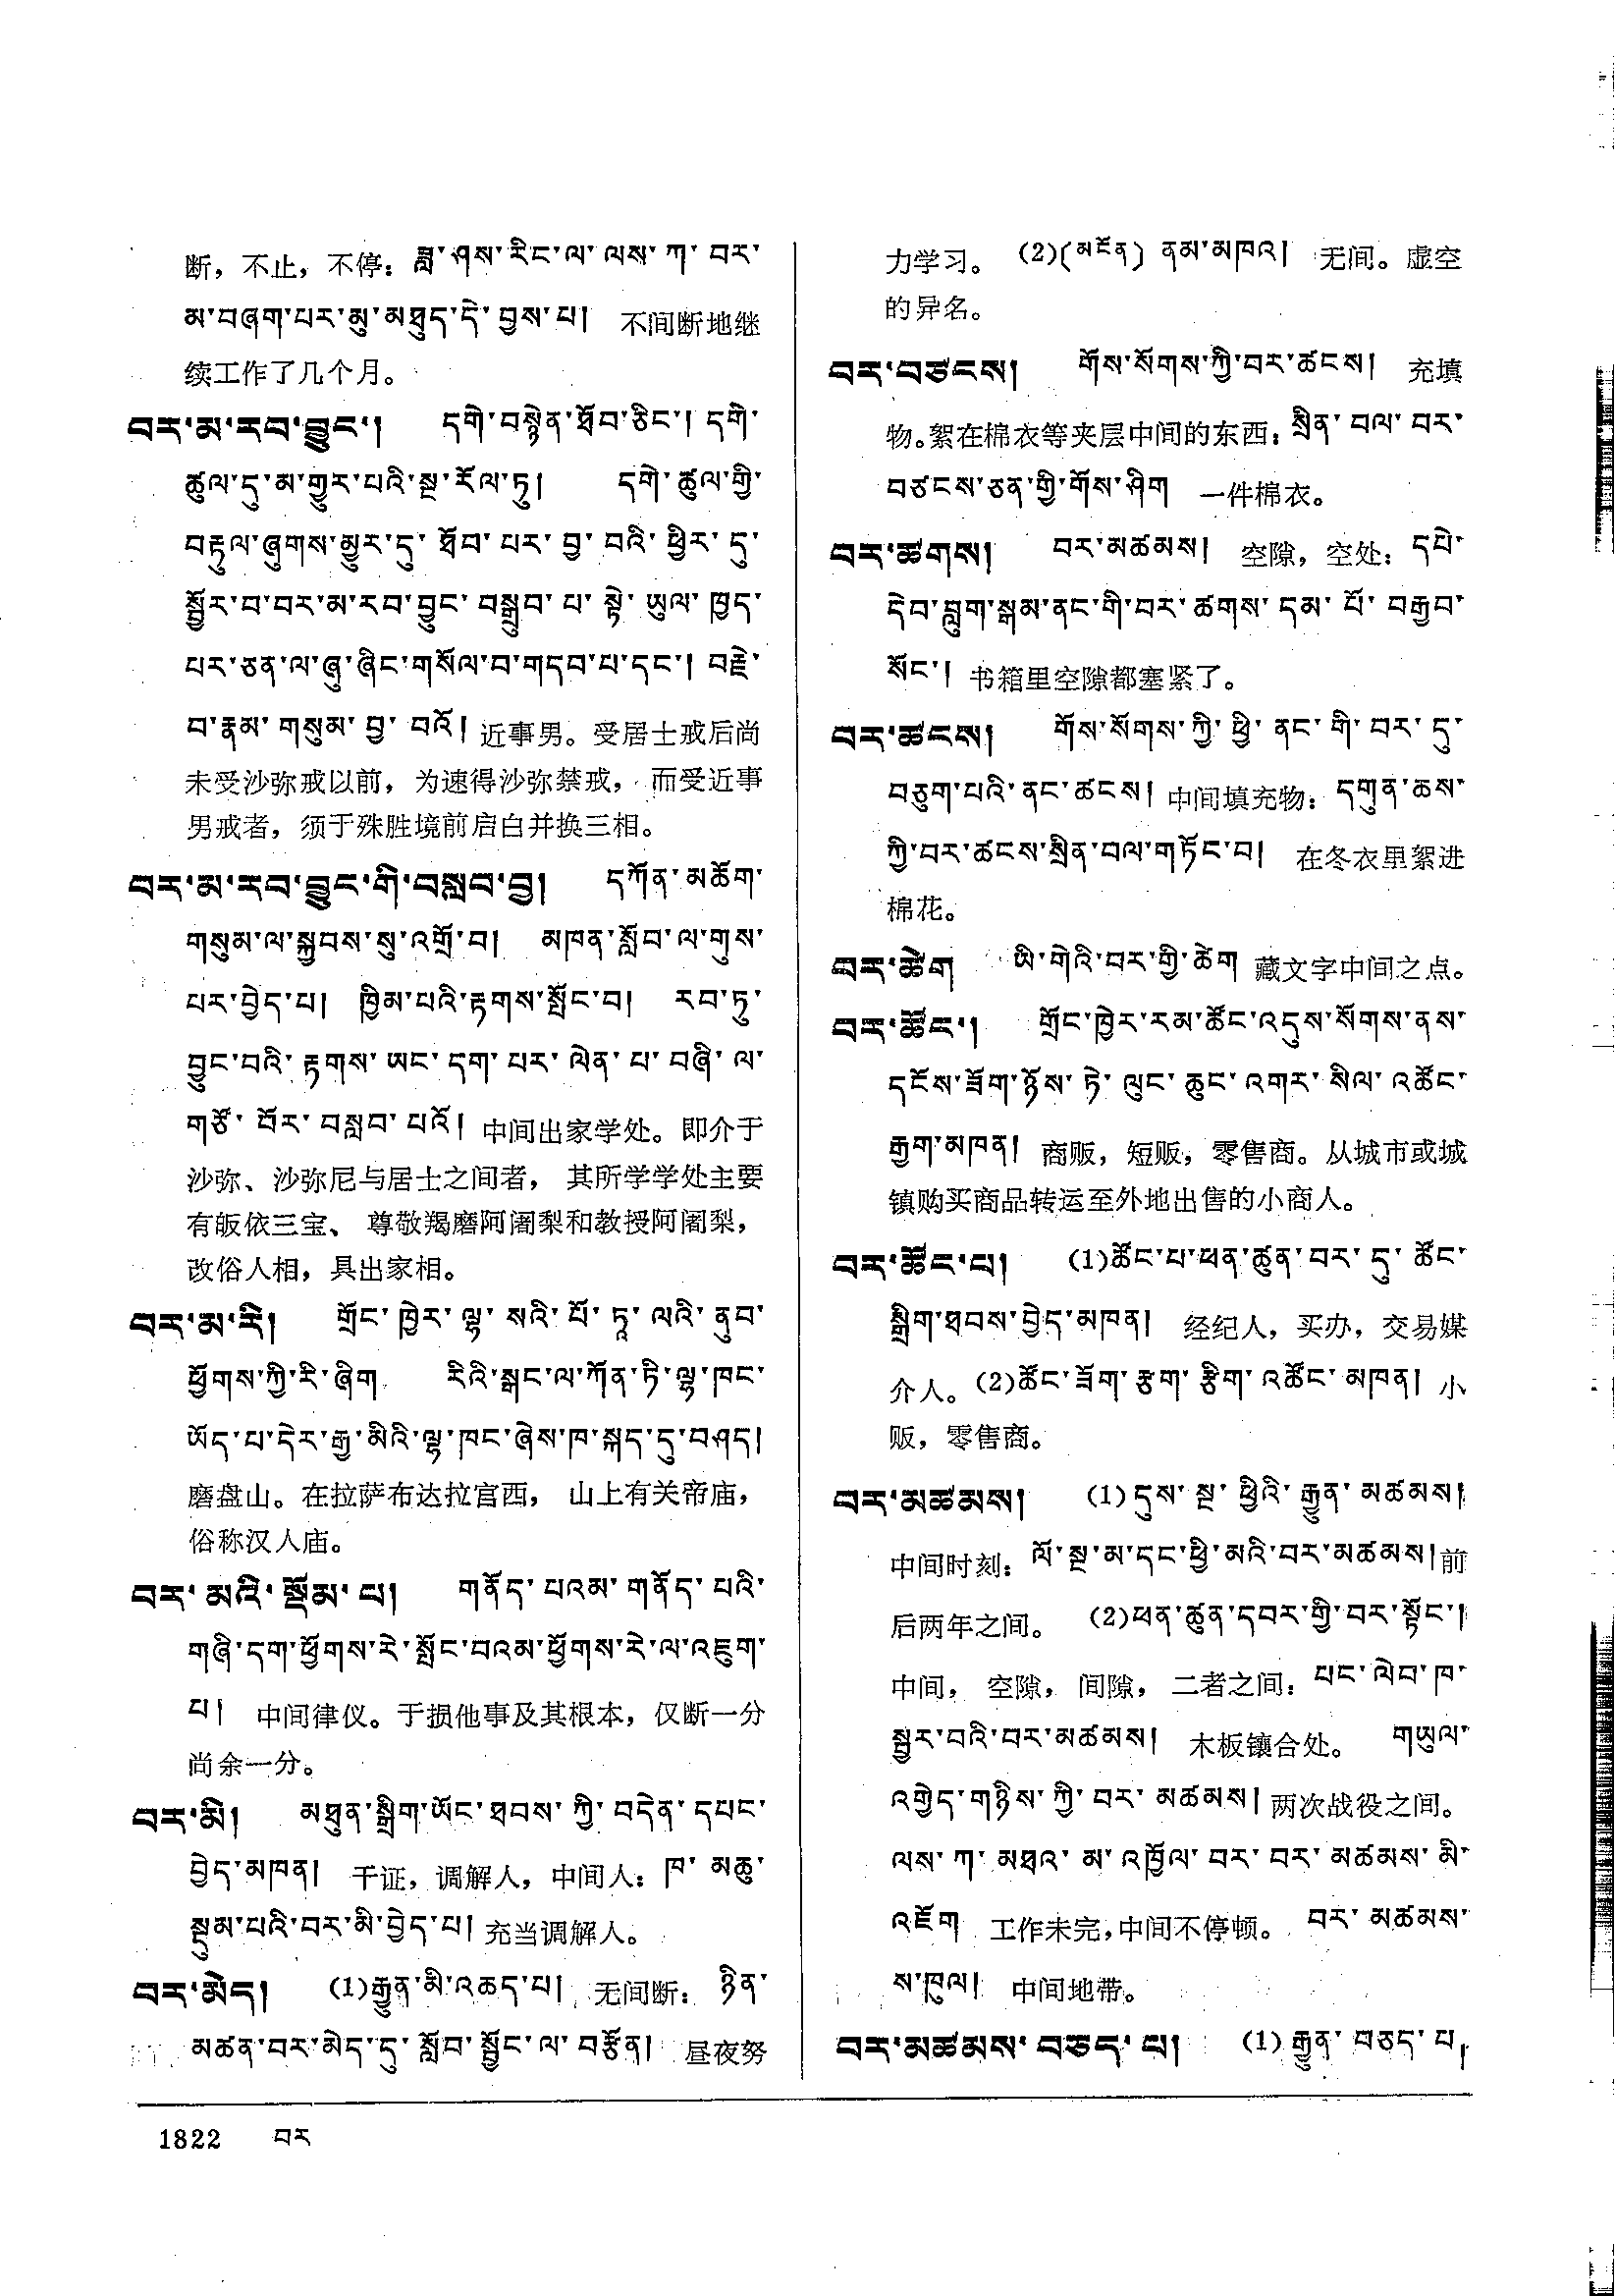 断，不止，不停：ཟླ་ཤས་རིང་ལ་ལས་ཀ་བར་
མ་བཞག་པར་མུ་མཐུད་དེ་བྱས་པ། 不间断地继
续工作了几个月。
བར་མ་རབ་བྱུང་། དགེ་བསྙེན་ཐོབ་ཅིང་། དགེ་
ཚུལ་དུ་མ་གྱུར་པའི་སྔ་རོལ་ཏུ། དགེ་ཚུལ་གྱི་
བརྟུལ་ཞུགས་མྱུར་དུ་ཐོབ་པར་བྱ་བའི་ཕྱིར་དུ་
སྦྱོར་བ་བར་མ་རབ་བྱུང་བསྒྲུབ་པ་སྟེ་ཡུལ་ཁྱད་
པར་ཅན་ལ་ཞུ་ཞིང་གསོལ་བ་གདབ་པ་དང་། བརྗེ་
བ་རྣམ་གསུམ་བྱ་བའོ། 近事男。受居士戒后尚
未受沙弥戒以前，为速得沙弥禁戒，而受近事
男戒者，须于殊胜境前启白并换三相。
བར་མ་རབ་བྱུང་གི་བསླབ་བྱ། དཀོན་མཆོག་
གསུམ་ལ་སྐྱབས་སུ་འགྲོ་བ། མཁན་སློབ་ལ་གུས་
པར་བྱེད་པ། ཁྱིམ་པའི་རྟགས་སྤོང་བ། རབ་ཏུ་
བྱུང་བའི་རྟགས་ཡང་དག་པར་ལེན་པ་བཞི་ལ་
གཙོ་བོར་བསླབ་པའོ། 中间出家学处。即介于
沙弥、沙弥尼与居士之间者，其所学学处主要
有皈依三宝、尊敬羯磨阿阇梨和教授阿阇梨，
改俗人相，具出家相。
བར་མ་རི། གྲོང་ཁྱེར་ལྷ་སའི་པོ་ཏཱ་ལའི་ནུབ་
ཕྱོགས་ཀྱི་རི་ཞིག རིའི་སྒང་ལ་ཀོན་ཏི་ལྷ་ཁང་
ཡོད་པ་དེར་རྒྱ་མིའི་ལྷ་ཁང་ཞེས་ཁ་སྐད་དུ་བཤད།
磨盘山。在拉萨布达拉宫西，山上有关帝庙，
俗称汉人庙。
བར་མའི་སྡོམ་པ། གནོད་པའམ་གནོད་པའི་
གཞི་དག་ཕྱོགས་རེ་སྤོང་བའམ་ཕྱོགས་རེ་ལ་འཇུག་
པ། 中间律仪。于损他事及其根本，仅断一分
尚余一分。
བར་མི། མཐུན་སྒྲིག་ཡོང་ཐབས་ཀྱི་བདེན་དཔང་
བྱེད་མཁན། 干证，调解人，中间人：ཁ་མཆུ་
སྡུམ་པའི་བར་མི་བྱེད་པ། 充当调解人。
བར་མེད། (1)རྒྱུན་མི་འཆད་པ། 无间断：ཉིན་
མཚན་བར་མེད་དུ་སློབ་སྦྱོང་ལ་བརྩོན། 昼夜努
力学习。 (2)(མངོན) ནམ་མཁའ། 无间。虚空
的异名。
བར་བཙངས། གོས་སོགས་ཀྱི་བར་ཚངས། 充填
物。絮在棉衣等夹层中间的东西：སྲིན་བལ་བར་
བཙངས་ཅན་གྱི་གོས་ཤིག 一件棉衣。
བར་ཚགས། བར་མཚམས། 空隙，空处：དཔེ་
དེབ་བླུག་སྒམ་ནང་གི་བར་ཚགས་དམ་པོ་བརྒྱབ་
སོང་། 书箱里空隙都塞紧了。
བར་ཚངས། གོས་སོགས་ཀྱི་ཕྱི་ནང་གི་བར་དུ་
བཅུག་པའི་ནང་ཚངས། 中间填充物：དགུན་ཆས་
ཀྱི་བར་ཚངས་སྲིན་བལ་གཏོང་བ། 在冬衣里絮进
棉花。
བར་ཚེག ཡི་གེའི་བར་གྱི་ཚེག 藏文字中间之点。
བར་ཚོང་། གྲོང་ཁྱེར་རམ་ཚོང་འདུས་སོགས་ནས་
དངོས་ཟོག་ཉོས་ཏེ་ལུང་ཆུང་འགར་སིལ་འཚོང་
རྒྱག་མཁན། 商贩，短贩，零售商。从城市或城
镇购买商品转运至外地出售的小商人。
བར་ཚོང་པ། (1)ཚོང་པ་ཕན་ཚུན་བར་དུ་ཚོང་
སྒྲིག་ཐབས་བྱེད་མཁན། 经纪人，买办，交易媒
介人。(2)ཚོང་ཟོག་རྩག་རྩིག་འཚོང་མཁན། 小
贩，零售商。
བར་མཚམས། (1)དུས་སྔ་ཕྱིའི་རྒྱུན་མཚམས།
中间时刻：ལོ་སྔ་མ་དང་ཕྱི་མའི་བར་མཚམས། 前
后两年之间。 (2)ཕན་ཚུན་དབར་གྱི་བར་སྟོང་།
中间，空隙，间隙，二者之间：པང་ལེབ་ཁ་
སྦྱར་བའི་བར་མཚམས། 木板镶合处。 གཡུལ་
འགྱེད་གཉིས་ཀྱི་བར་མཚམས། 两次战役之间。
ལས་ཀ་མཐའ་མ་འཁྱོལ་བར་བར་མཚམས་མི་
འཇོག 工作未完，中间不停顿。 བར་མཚམས་
ས་ཁུལ། 中间地带。
བར་མཚམས་བཅད་པ། (1)རྒྱུན་བཅད་པ།
1822 བར